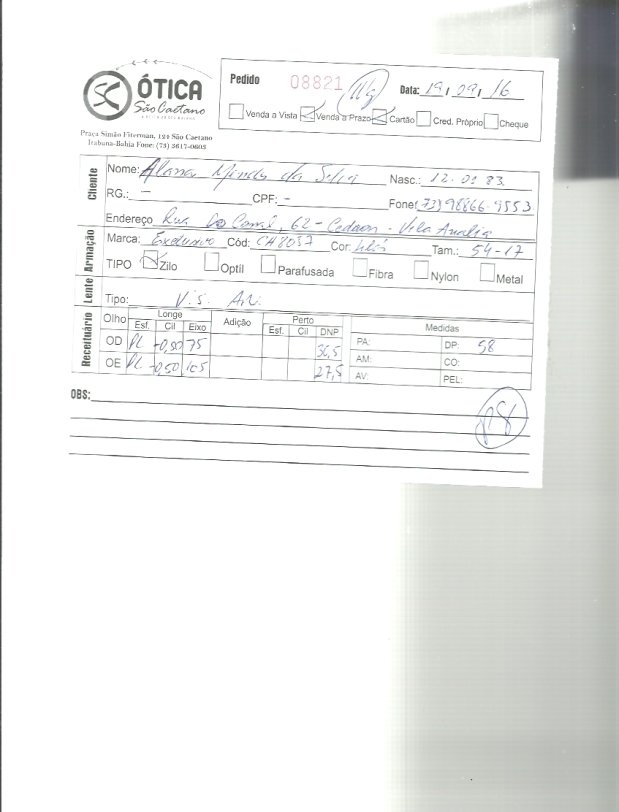 ÓTICA
São Caetano
Praça Simão Fiterman, 124 São Caetano
Itabuna-Bahia Fone: (73) 3617-0603
Pedido 08821 Data: 19, 09, 16
Venda a Vista Venda a Prazo Cartão Cred. Próprio Cheque
Cliente
Nome: Alana Mendes da Silva Nasc.: 12.01 83.
RG.: CPF: - Fone: (73) 98866.9553
Endereço Rua Do Canal, 62 - - Vila Anália
Armação
Marca: Exclusivo Cód: CH8057 Cor: Lilás Tam.: 54-17
TIPO Zilo Optil Parafusada Fibra Nylon Metal
Lente
Tipo: V.S. A.R.
Receituário
Olho Longe Adição Perto Medidas
Esf. Cil Eixo Esf. Cil DNP
OD PL -0,50 75 PA: DP: 58
OE PL -0,50 105 27,5 AM: CO:
AV: PEL:
OBS: